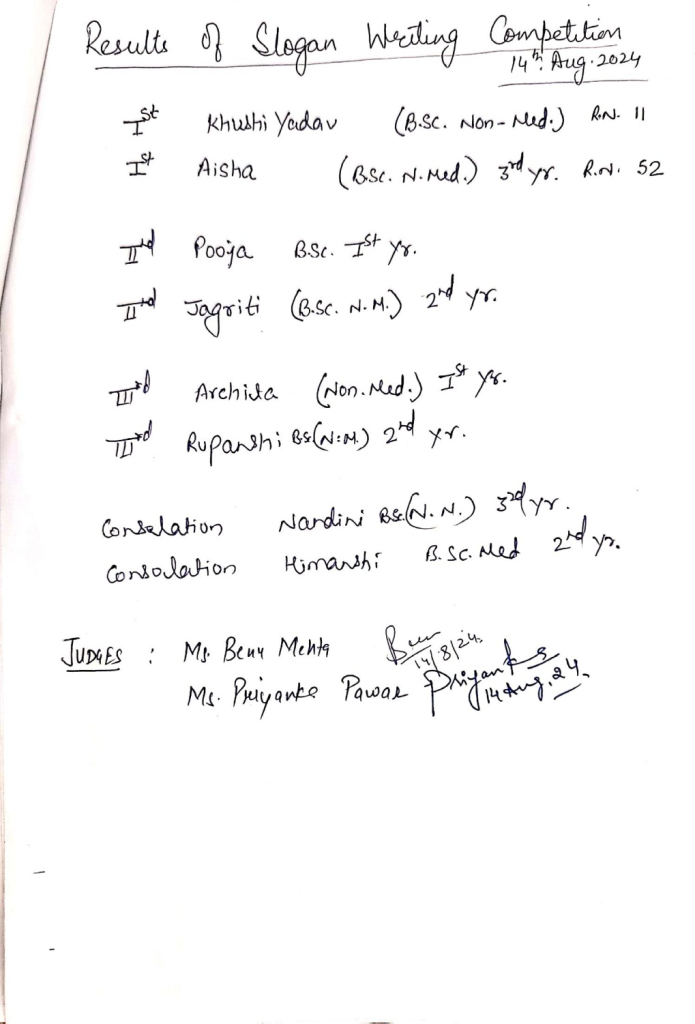 Results of Slogan Writing Competition
14th Aug. 2024
Ist Khushi Yadav (B.Sc. Non-Med.) R.N. 11
Ist Aisha (BSc. N.Med.) 3rd yr. R.N. 52
IInd Pooja B.Sc. Ist yr.
IInd Jagriti (B.Sc. N.M.) 2nd yr.
IIIrd Archita (Non.Med.) Ist yr.
IIIrd Rupanshi BSc(N.M.) 2nd yr.
Consolation Nandini BSc.(N.N.) 3rd yr.
Consolation Himanshi B.Sc. Med 2nd yr.
JUDGES : Ms. Benu Mehta 14/8/24.
Ms. Priyanka Pawar Priyanka 14 Aug. 24.